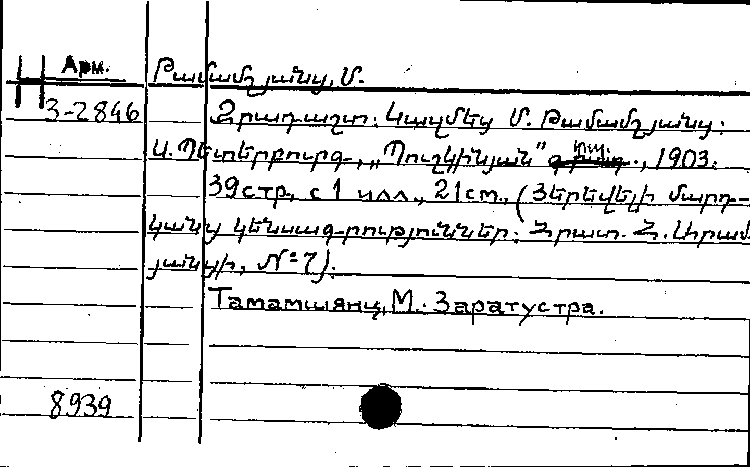 Арм. Թամամշյանց, Մ.
3-2846 Զրադաշտ: Կազմեց Մ. Թամամշյանց:
Ս. Պետերբուրգ, „Պուշկինյան" տպ., 1903:
39 стр. с 1 илл., 21 см., (Յերեվելի մարդ-
կանց կենսագրություններ: Հրատ. Հ. Լիրամ
յանցի, № 7).
Тамамшянц, М. Заратустра.
8939